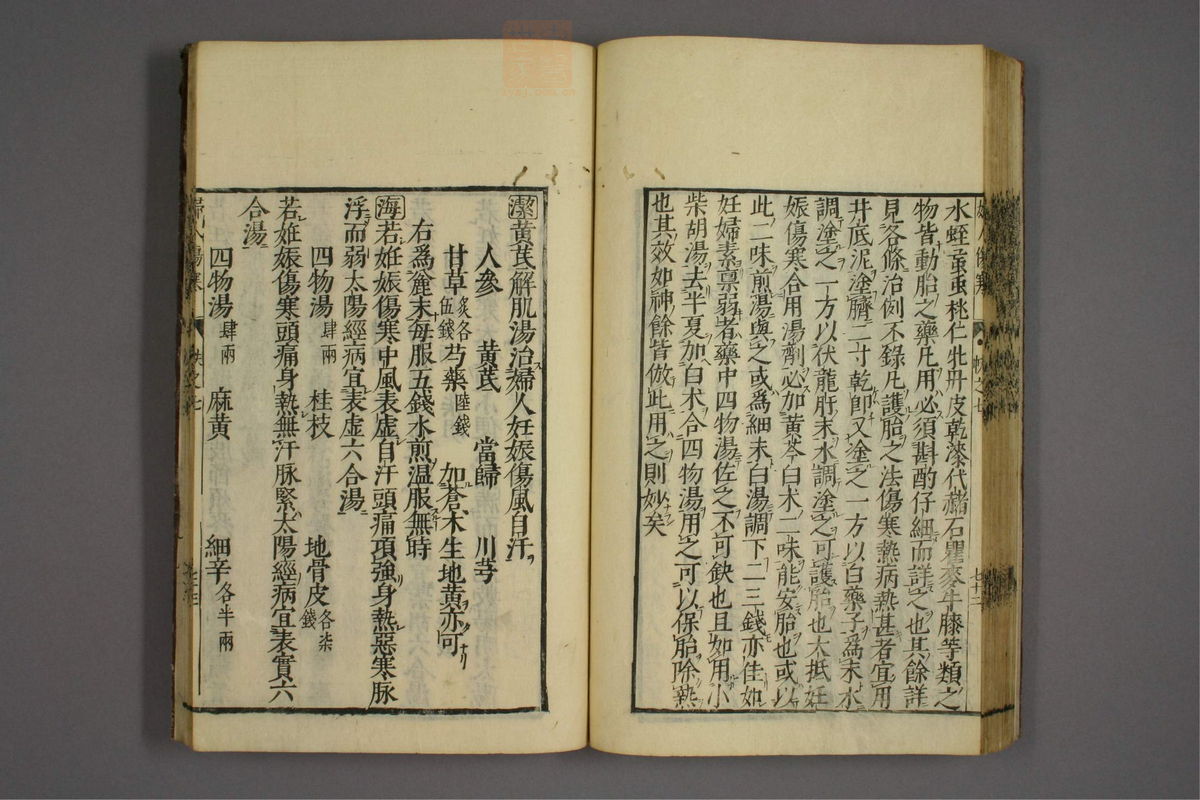 水蛭䖟蟲桃仁牡丹皮乾漆代赭石瞿麥牛膝等類之
物皆動胎之藥凡用必須斟酌仔細而詳之也其餘詳
見各條治例不錄凡護胎之法傷寒熱病熱甚者宜用
井底泥塗臍二寸乾即又塗之一方以白藥子爲末水
調塗之一方以伏龍肝末水調塗之可護胎也大抵妊
娠傷寒合用湯劑必加黃芩白朮二味能安胎也或以
此二味煎湯與之或爲細末白湯調下二三錢亦佳如
妊婦素禀弱者藥中四物湯佐之不可缺也且如用小
柴胡湯去半夏加白朮合四物湯用之可以保胎除熱
也其效如神餘皆倣此用之則妙矣
潔黃芪解肌湯治婦人妊娠傷風自汗
人參 黃芪 當歸 川芎
甘草炙各伍錢 芍藥陸錢 加蒼朮生地黃亦可
右爲麄末每服五錢水煎溫服無時
海若妊娠傷寒中風表虛自汗頭痛項強身熱惡寒脉
浮而弱太陽經病宜表虛六合湯
四物湯肆兩 桂枝 地骨皮各柒錢
若妊娠傷寒頭痛身熱無汗脉緊太陽經病宜表實六
合湯
四物湯肆兩 麻黃 細辛各半兩